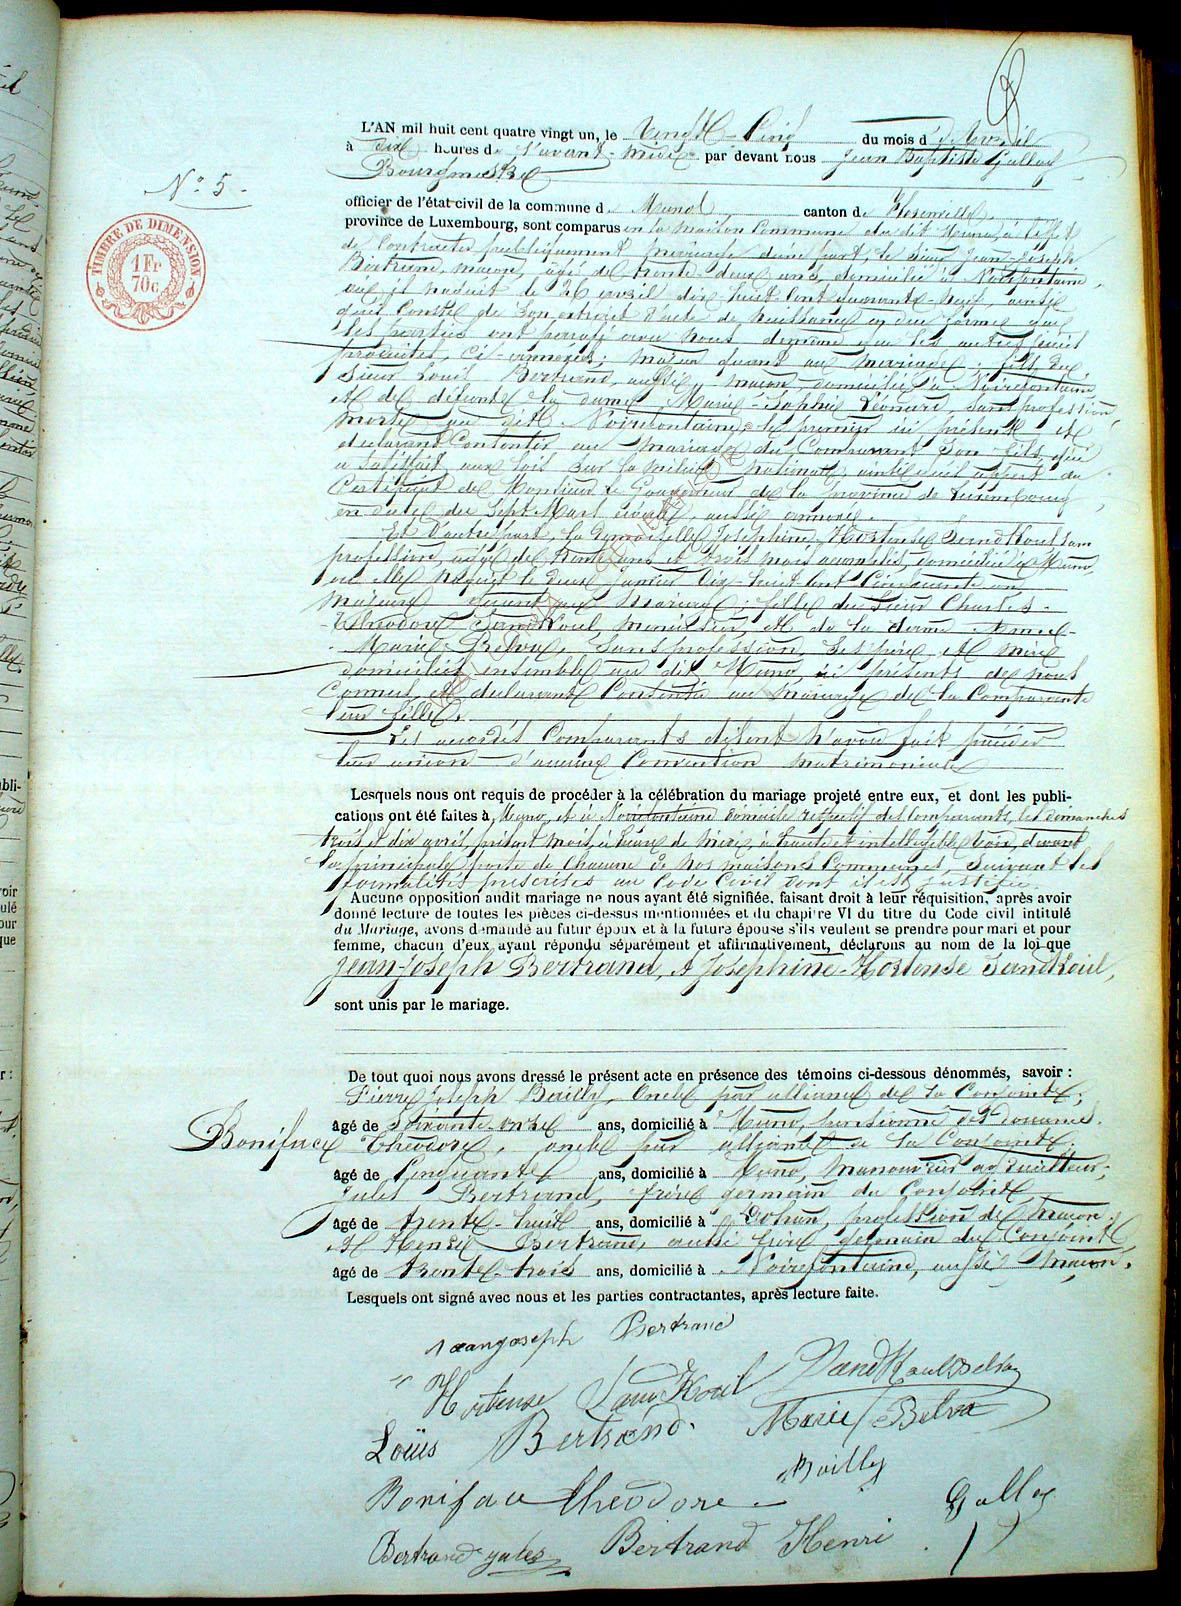 L'AN mil huit cent quatre vingt un, le Vingt-Cinq du mois d'Avril
à Dix heures de l'avant-midi par devant nous Jean Baptiste Gallas
Bourgmestre
N° 5 -
officier de l'état-civil de la commune de Muno canton de Florenville
province de Luxembourg, sont comparus en la maison Commune du dit Muno, à l'effet
TIMBRE DE DIMENSION
1 Fr
70c
de Contracter publiquement mariage d'une part, le sieur Jean-Joseph
Bertrand, maçon, âgé de trente-deux ans, domicilié à Noirefontaine,
où il naquit le 26 avril dix-huit Cent quarante-neuf, ainsi
qu'il Conste de son extrait d'acte de naissance en due forme que
les parties ont paraphé avec nous, de même que les autres pièces
produites, Ci-annexées; majeur quant au mariage; fils du
Sieur Louis Bertrand, aussi maçon domicilié à Noirefontaine,
et de défunte la dame Marie-Sophie Léonard, sans profession,
morte au dit Noirefontaine; le premier ici présent et
déclarant Consentir au mariage du Comparant Son fils, qui
a satisfait aux lois sur la milice nationale, ainsi qu'il appert du
Certificat de Monsieur le Gouverneur de la province de Luxembourg
en date du Sept Mars écoulé aussi annexé.
Et d'autre part, la Demoiselle Joséphine-Hortense Sandkoul sans
profession, âgée de trente ans et trois mois accomplis, domiciliée à Muno,
où elle naquit le deux Janvier dix-huit Cent Cinquante un
majeure quant au mariage; fille du Sieur Charles-
-Théodore Sandkoul, menuisier, et de la dame Aimée-
-Marie Belva, Sans profession, Ses père et mère
domiciliés ensemble au dit Muno, ici présents de nous
Connus, et déclarant Consentir au mariage de la Comparante
leur fille.
Les accordés Comparants disent n'avoir fait précéder
leur union d'aucune Convention matrimoniale
Lesquels nous ont requis de procéder à la célébration du mariage projeté entre eux, et dont les publi-
cations ont été faites à Muno, et à Noirefontaine domicile respectif des Comparants, les dimanches
trois et dix avril, présent mois, à heure de midi, à haute et intelligible voix, devant
la principale porte de Chacune de nos maisons Communes, Suivant les
formalités prescrites au Code Civil dont il est justifié.
Aucune opposition audit mariage ne nous ayant été signifiée, faisant droit à leur réquisition, après avoir
donné lecture de toutes les pièces ci-dessus mentionnées et du chapitre VI du titre du Code civil intitulé
du Mariage, avons demandé au futur époux et à la future épouse s'ils veulent se prendre pour mari et pour
femme, chacun d'eux ayant répondu séparément et affirmativement, déclarons au nom de la loi que
Jean-Joseph Bertrand, et Joséphine-Hortense Sandkoul,
sont unis par le mariage.
De tout quoi nous avons dressé le présent acte en présence des témoins ci-dessous dénommés, savoir :
Pierre Joseph Bailly, Oncle par alliance de la Conjointe,
âgé de Soixante-onze ans, domicilié à Muno, pensionné des Douanes.
Boniface Théodore, oncle par alliance de la Conjointe.
âgé de Cinquante ans, domicilié à Muno, manouvrier
Jules Bertrand, frère germain du Conjoint
âgé de trente-huit ans, domicilié à Dohan, profession de maçon.
Et Henri Bertrand, aussi frère germain du Conjoint
âgé de trente-trois ans, domicilié à Noirefontaine, aussi maçon.
Lesquels ont signé avec nous et les parties contractantes, après lecture faite.
Jean joseph Bertrand
Hortense Sandkoul Sandkoul Belva
Louis Bertrand. Marie Belva
Bailly
Boniface théodore Gallas
Bertrand jules Bertrand Henri